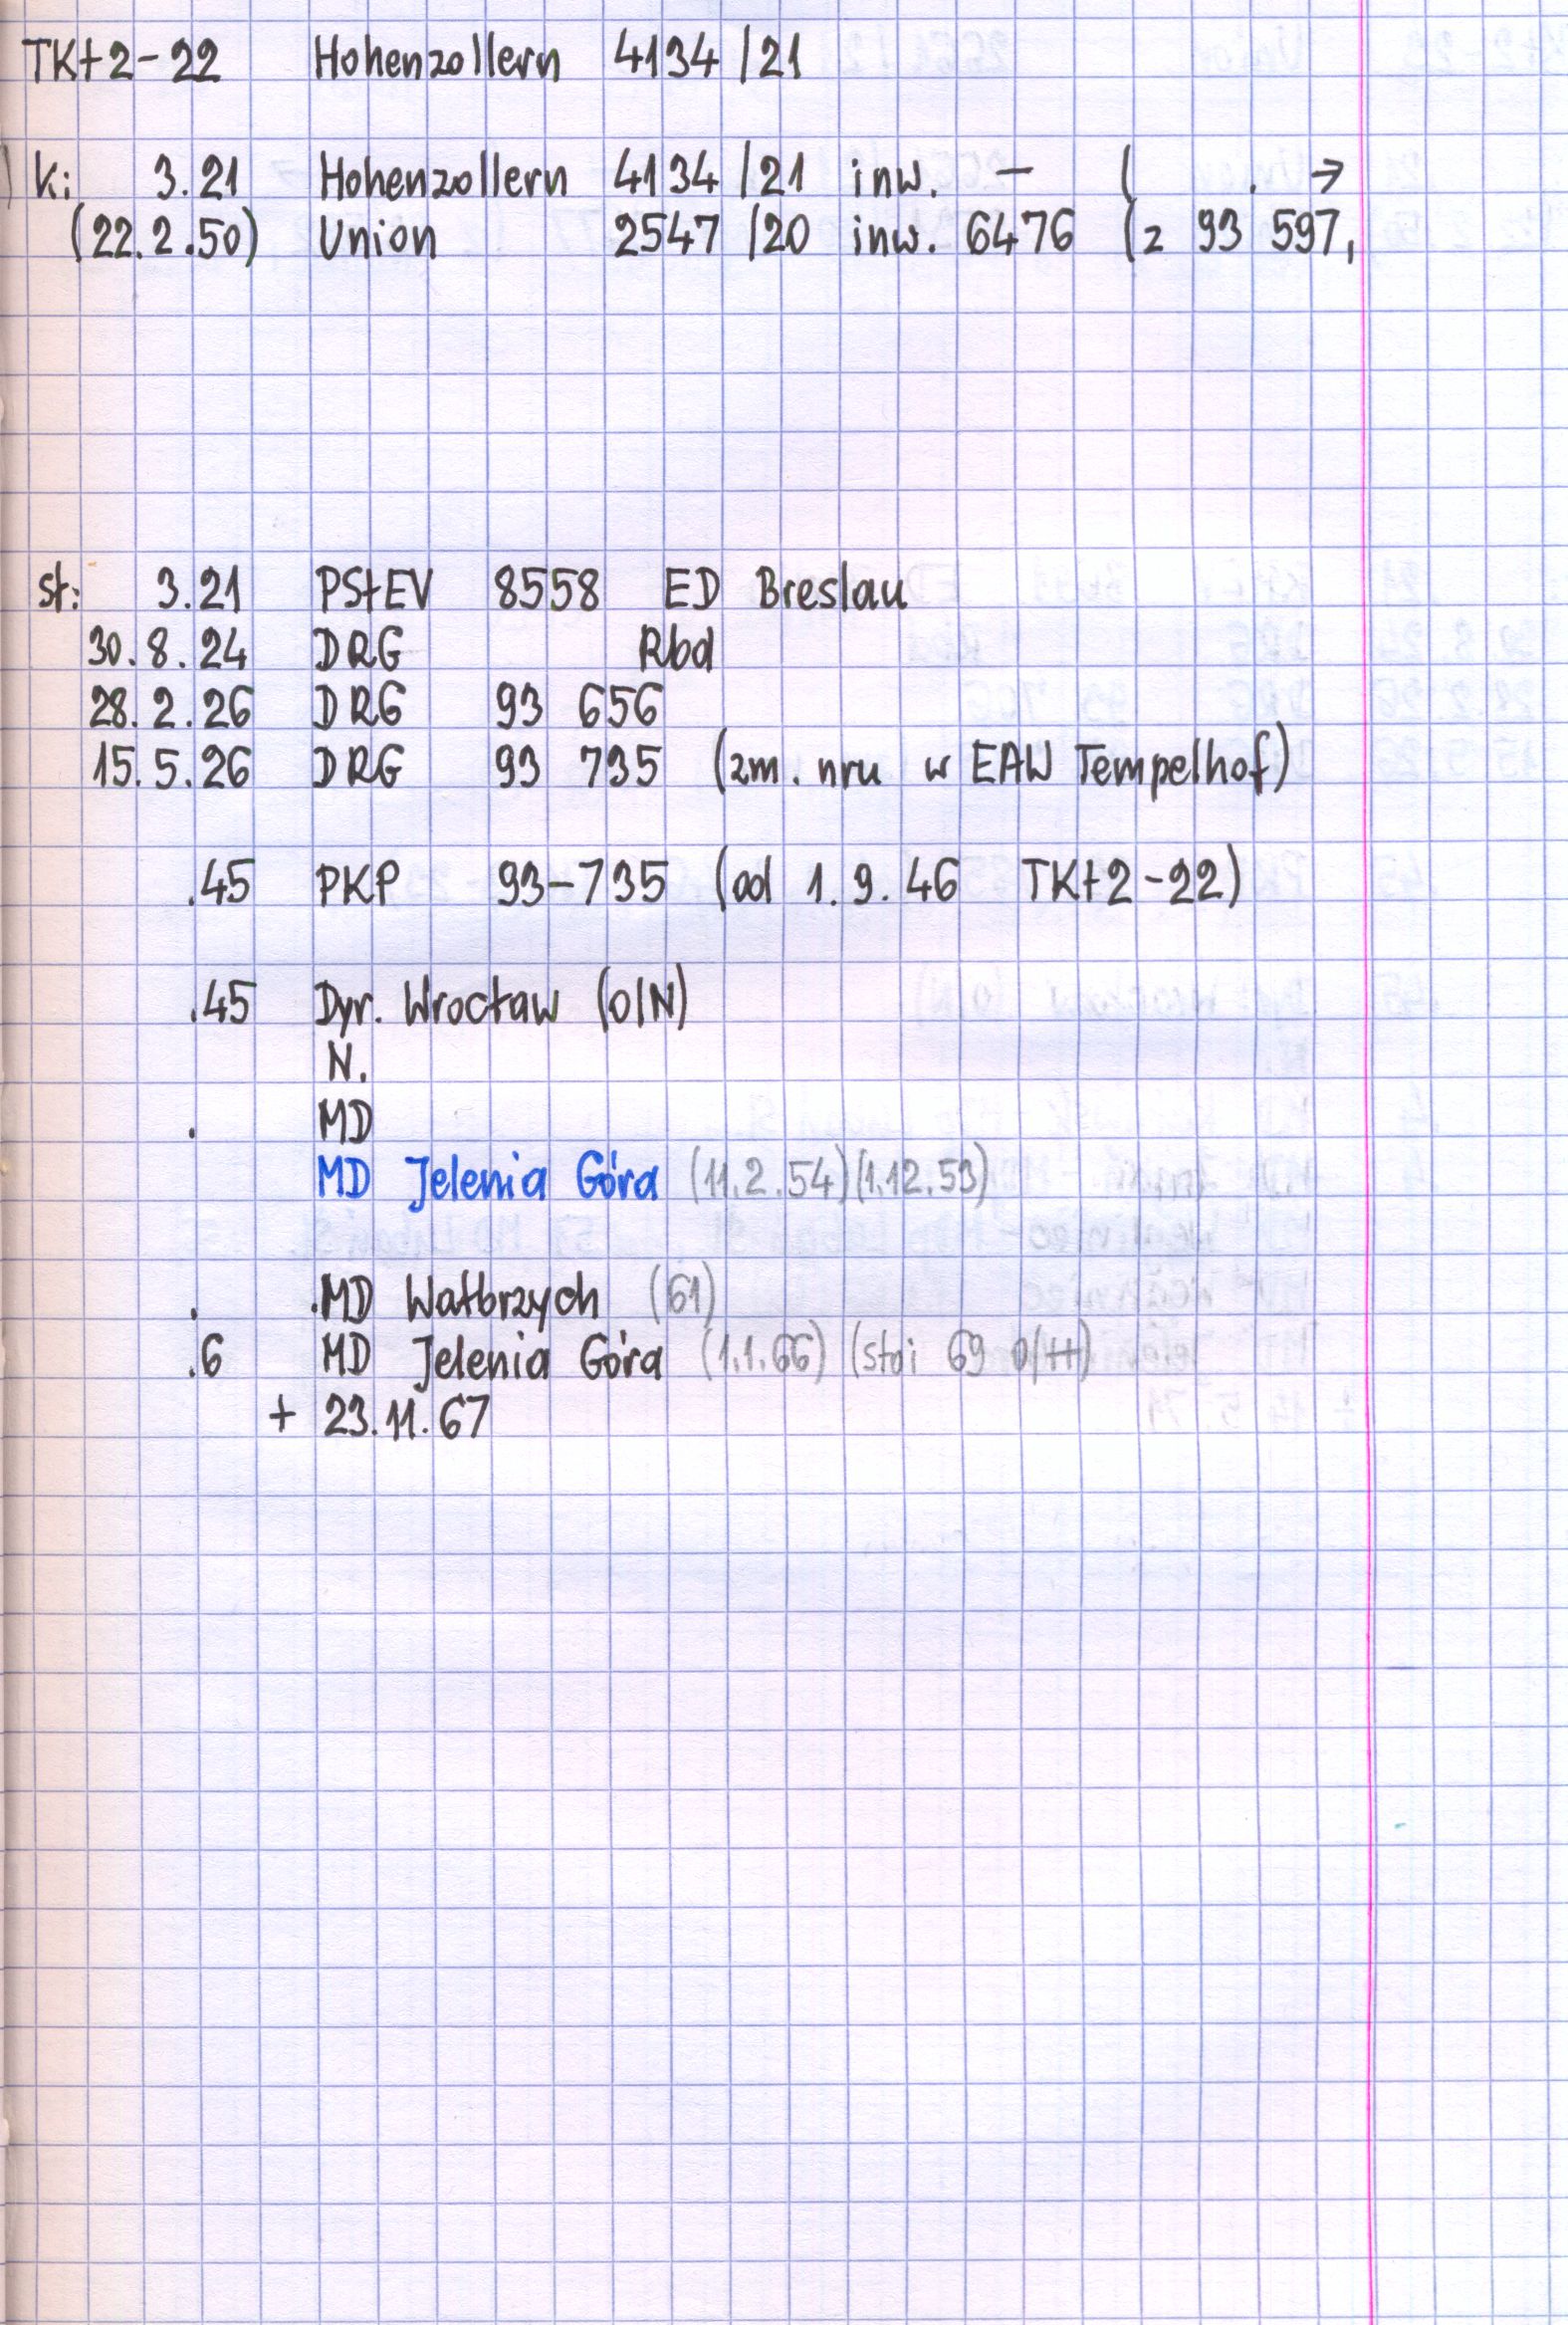 TKt2-22 Hohenzollern 4134/21
k: 3.21 Hohenzollern 4134/21 inw. – ( . →
(22.2.50) Union 2547/20 inw. 6476 (z 93 597,
st: 3.21 PStEV 8558 ED Breslau
30.8.24 DRG Rbd
28.2.26 DRG 93 656
15.5.26 DRG 93 735 (zm. nru w EAW Tempelhof)
.45 PKP 93-735 (od 1.9.46 TKt2-22)
.45 Dyr. Wrocław (o/N)
N.
. MD
MD Jelenia Góra (11.2.54)(1.12.53)
. .MD Wałbrzych (61)
.6 MD Jelenia Góra (1.1.66) (stoi 69
+ 23.11.67